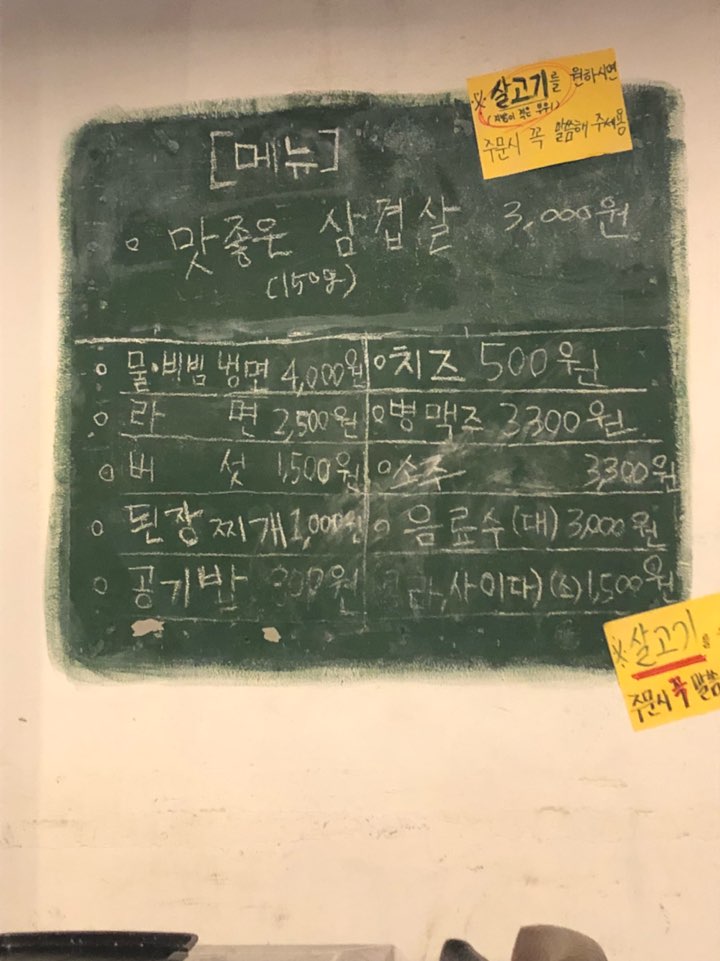 ※ 살고기를 원하시면
(지방이 적은 부위)
주문시 꼭 말씀해 주세용
[메뉴]
o 맛좋은 삼겹살 3,000원
(150g)
o 물·비빔냉면 4,000원
o 치즈 500원
o 라 면 2,500원
o 병맥주 3300원
o 버 섯 1,500원
o 소주 3,300원
o 된장찌개 1,000원
o 음료수(대) 3,000원
o 공기밥 원
사이다) (소) 1,500원
※살고기를
주문시 꼭 말씀